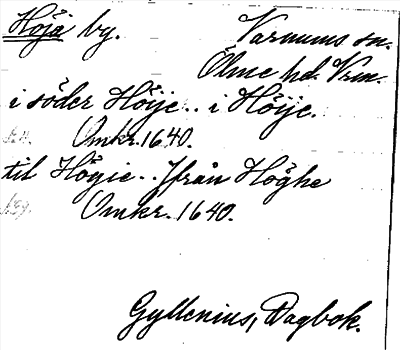 Höjä by. Varnums sn.
Ölme hd. Vrm.
i söder Höije.. i Höije.
Omkr. 1640.
til Högie.. Ifrån Höghe
Omkr. 1640.
Gyllenius, Dagbok.